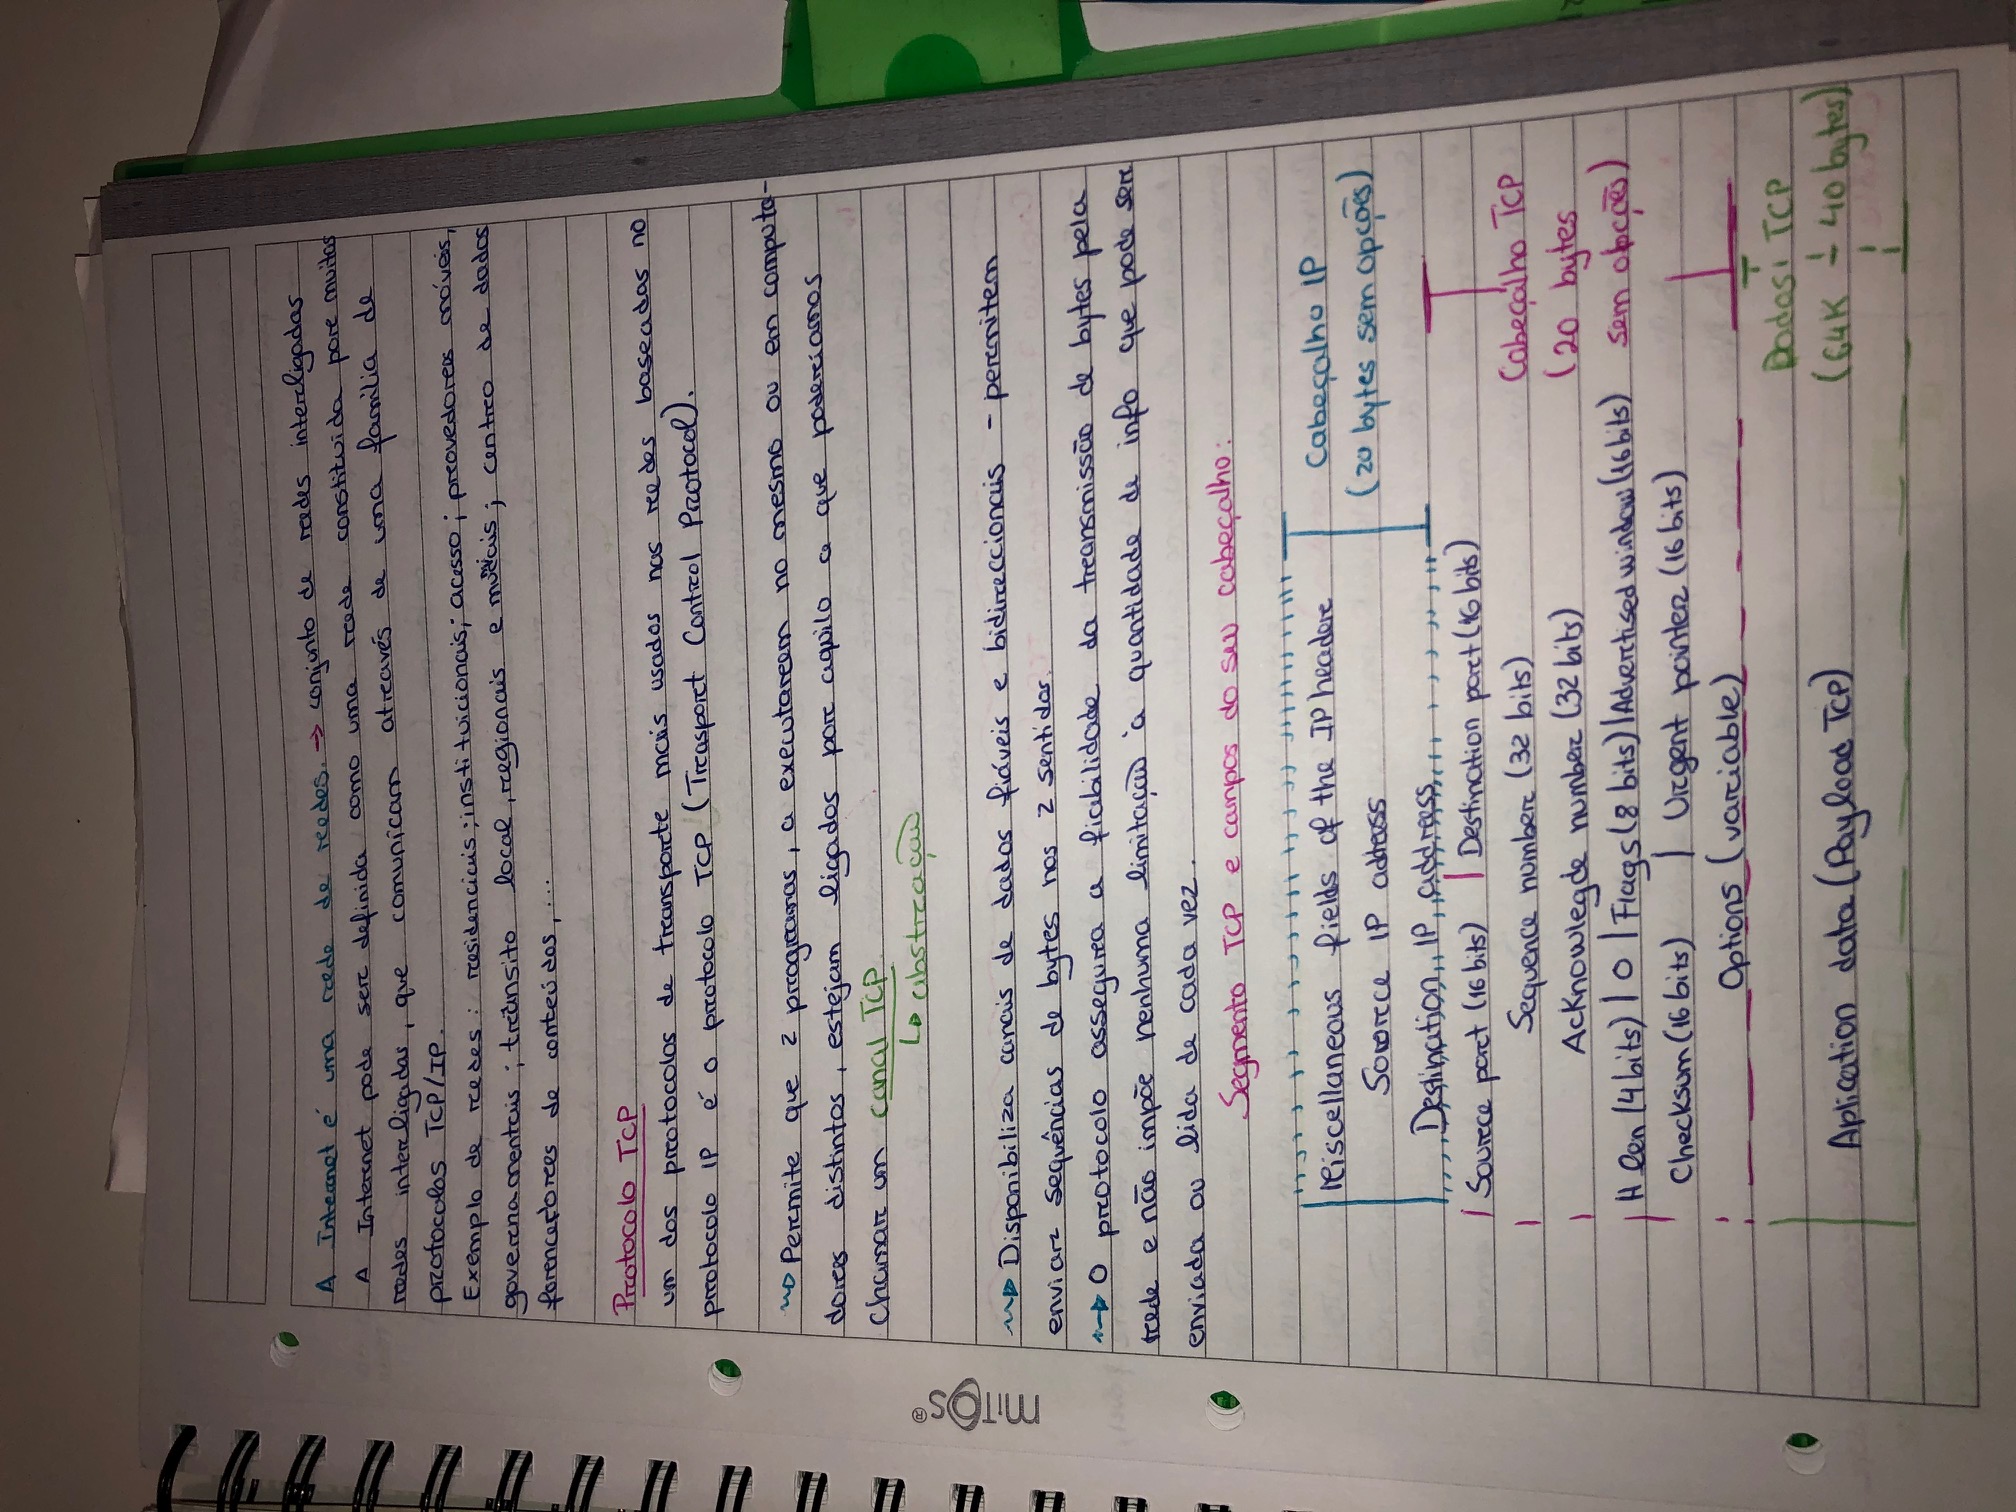 A Internet é uma rede de redes. → conjunto de redes interligadas
A Internet pode ser definida como uma rede constituida por muitas
redes interligadas, que comunicam através de uma família de
protocolos TCP/IP.
Exemplo de redes: residenciais; instituicionais; acesso; provedores móveis,
governamentais; trânsito local, regionais e mundiais; centro de dados
forencedores de conteúdos, ...
Protocolo TCP
um dos protocolos de transporte mais usados nas redes baseadas no
protocolo IP é o protocolo TCP (Trasport Control Protocol).
Permite que 2 programas, a executarem no mesmo ou em computa-
dores distintos, estejam ligados por aquilo a que poderíamos
chamar um canal TCP
↳ abstração
mitos®
Disponibiliza canais de dados fiáveis e bidireccionais - permitem
enviar sequências de bytes nos 2 sentidos.
→ O protocolo assegura a fiabilidade da transmissão de bytes pela
rede e não impõe nenhuma limitação à quantidade de info que pode ser
enviada ou lida de cada vez.
Segmento TCP e campos do seu cabeçalho:
Miscellaneous fields of the IP header Cabeçalho IP
Source IP address (20 bytes sem opções)
Destination IP address
Source port (16 bits) | Destination port (16 bits)
Sequence number (32 bits) Cabeçalho TCP
Acknowlegde number (32 bits) (20 bytes
H len (4 bits) | 0 | Flags (8 bits) | Advertised window (16 bits) sem opcções)
Checksum (16 bits) | Urgent pointer (16 bits)
Options (variable)
Dados TCP
Aplication data (Payload TCP) (64K - 40 bytes)